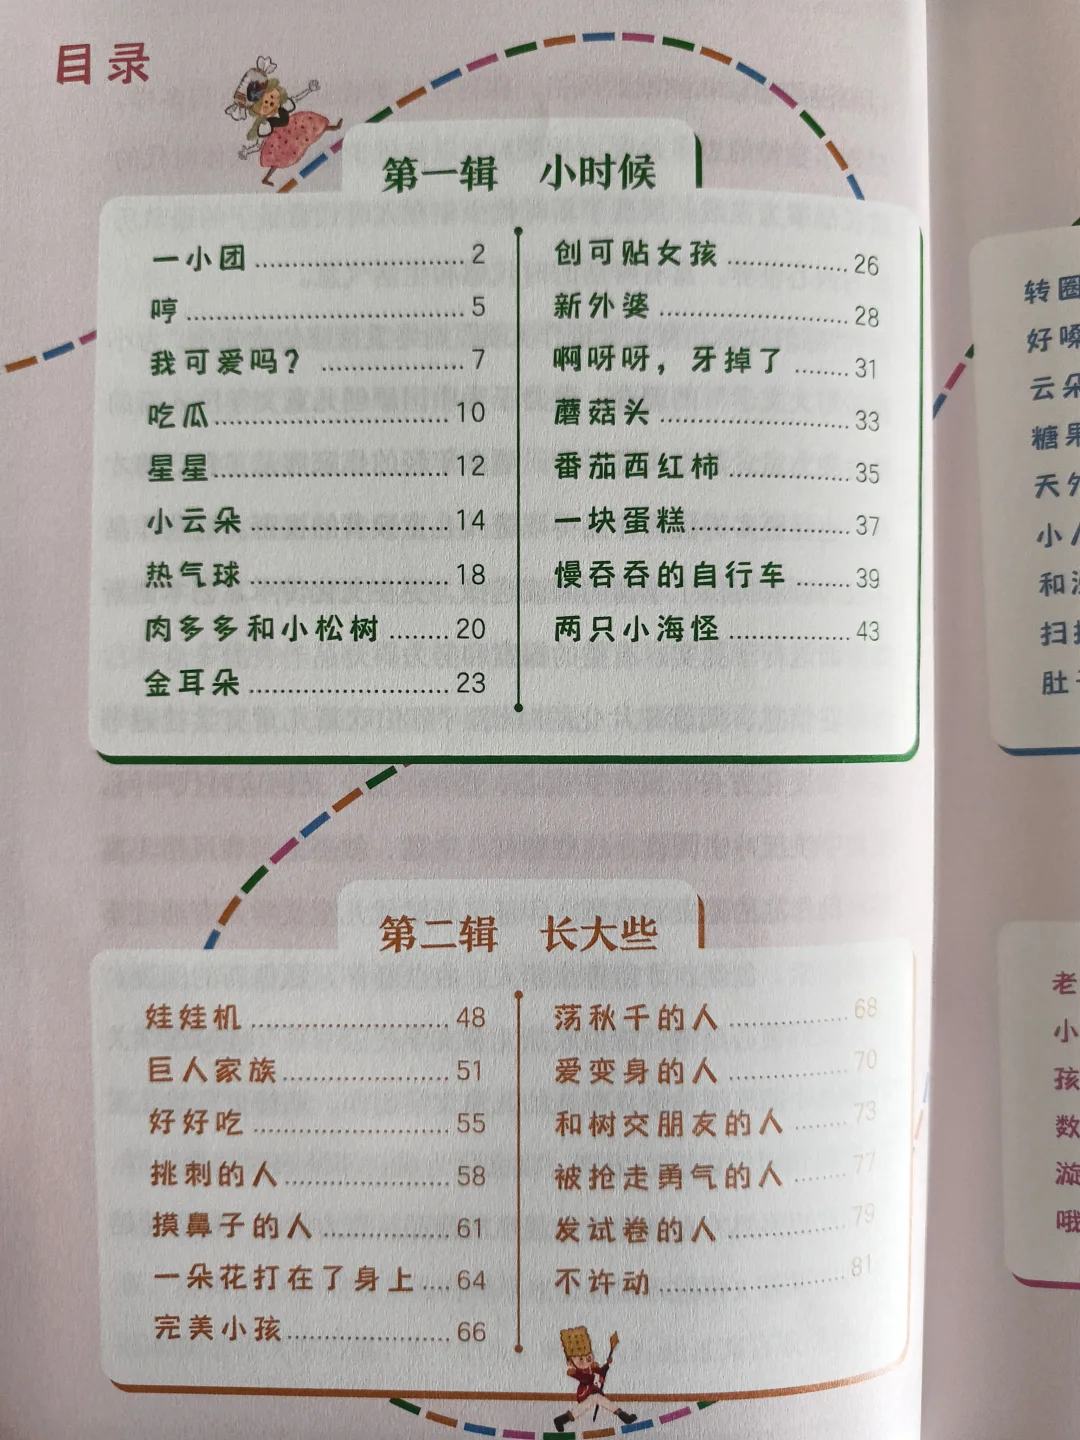 目录
第一辑 小时候
一小团 2
哼 5
我可爱吗？ 7
吃瓜 10
星星 12
小云朵 14
热气球 18
肉多多和小松树 20
金耳朵 23
创可贴女孩 26
新外婆 28
啊呀呀，牙掉了 31
蘑菇头 33
番茄西红柿 35
一块蛋糕 37
慢吞吞的自行车 39
两只小海怪 43
第二辑 长大些
娃娃机 48
巨人家族 51
好好吃 55
挑刺的人 58
摸鼻子的人 61
一朵花打在了身上 64
完美小孩 66
荡秋千的人 68
爱变身的人 70
和树交朋友的人 73
被抢走勇气的人 77
发试卷的人 79
不许动 81
转圈
好嗓
云朵
糖果
天外
小
和
扫
肚
老
小
孩
数
漩
哦